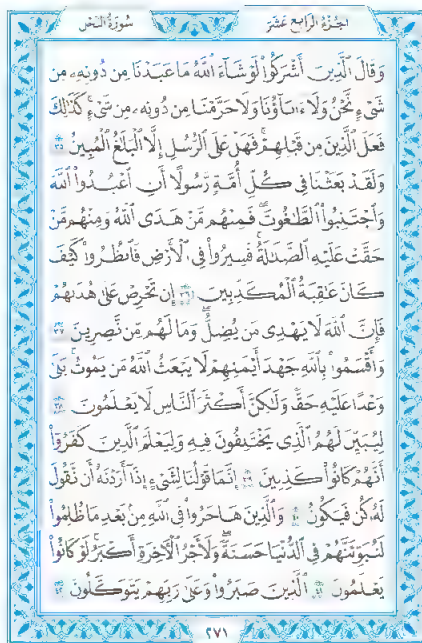 الجزء الرابع عشر
سورة النحل
وَقَالَ ٱلَّذِينَ أَشْرَكُوا۟ لَوْ شَآءَ ٱللَّهُ مَا عَبَدْنَا مِن دُونِهِۦ مِن
شَىْءٍ نَّحْنُ وَلَآ ءَابَآؤُنَا وَلَا حَرَّمْنَا مِن دُونِهِۦ مِن شَىْءٍ كَذَٰلِكَ
فَعَلَ ٱلَّذِينَ مِن قَبْلِهِمْ فَهَلْ عَلَى ٱلرُّسُلِ إِلَّا ٱلْبَلَٰغُ ٱلْمُبِينُ ٣٥
وَلَقَدْ بَعَثْنَا فِى كُلِّ أُمَّةٍ رَّسُولًا أَنِ ٱعْبُدُوا۟ ٱللَّهَ
وَٱجْتَنِبُوا۟ ٱلطَّٰغُوتَ فَمِنْهُم مَّنْ هَدَى ٱللَّهُ وَمِنْهُم مَّنْ
حَقَّتْ عَلَيْهِ ٱلضَّلَٰلَةُ فَسِيرُوا۟ فِى ٱلْأَرْضِ فَٱنظُرُوا۟ كَيْفَ
كَانَ عَٰقِبَةُ ٱلْمُكَذِّبِينَ ٣٦ إِن تَحْرِصْ عَلَىٰ هُدَىٰهُمْ
فَإِنَّ ٱللَّهَ لَا يَهْدِى مَن يُضِلُّ وَمَا لَهُم مِّن نَّٰصِرِينَ ٣٧
وَأَقْسَمُوا۟ بِٱللَّهِ جَهْدَ أَيْمَٰنِهِمْ لَا يَبْعَثُ ٱللَّهُ مَن يَمُوتُ بَلَىٰ
وَعْدًا عَلَيْهِ حَقًّا وَلَٰكِنَّ أَكْثَرَ ٱلنَّاسِ لَا يَعْلَمُونَ ٣٨
لِيُبَيِّنَ لَهُمُ ٱلَّذِى يَخْتَلِفُونَ فِيهِ وَلِيَعْلَمَ ٱلَّذِينَ كَفَرُوٓا۟
أَنَّهُمْ كَانُوا۟ كَٰذِبِينَ ٣٩ إِنَّمَا قَوْلُنَا لِشَىْءٍ إِذَآ أَرَدْنَٰهُ أَن نَّقُولَ
لَهُۥ كُن فَيَكُونُ ٤٠ وَٱلَّذِينَ هَاجَرُوا۟ فِى ٱللَّهِ مِنۢ بَعْدِ مَا ظُلِمُوا۟
لَنُبَوِّئَنَّهُمْ فِى ٱلدُّنْيَا حَسَنَةً وَلَأَجْرُ ٱلْءَاخِرَةِ أَكْبَرُ لَوْ كَانُوا۟
يَعْلَمُونَ ٤١ ٱلَّذِينَ صَبَرُوا۟ وَعَلَىٰ رَبِّهِمْ يَتَوَكَّلُونَ ٤٢
٢٧١